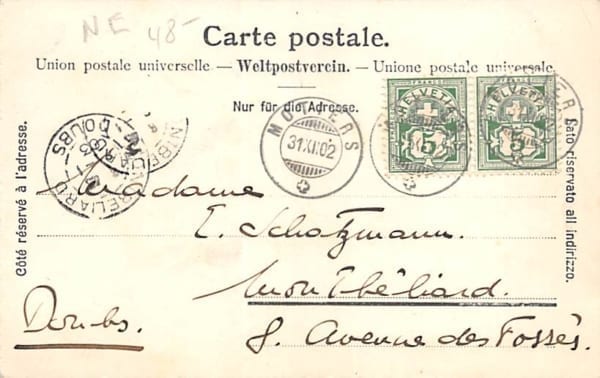 NE 48-
Carte postale.
Union postale universelle. — Weltpostverein. — Unione postale universale.
Nur für die Adresse.
Côté réservé à l'adresse.
Lato riservato all indirizzo.
MOTIERS
31.XII.02
HELVETIA
FRANCO
5
HELVETIA
FRANCO
5
MONTBELIARD
DOUBS
Madame
E. Schatzmann.
Montbéliard.
Doubs.
8. Avenue des Fossés.